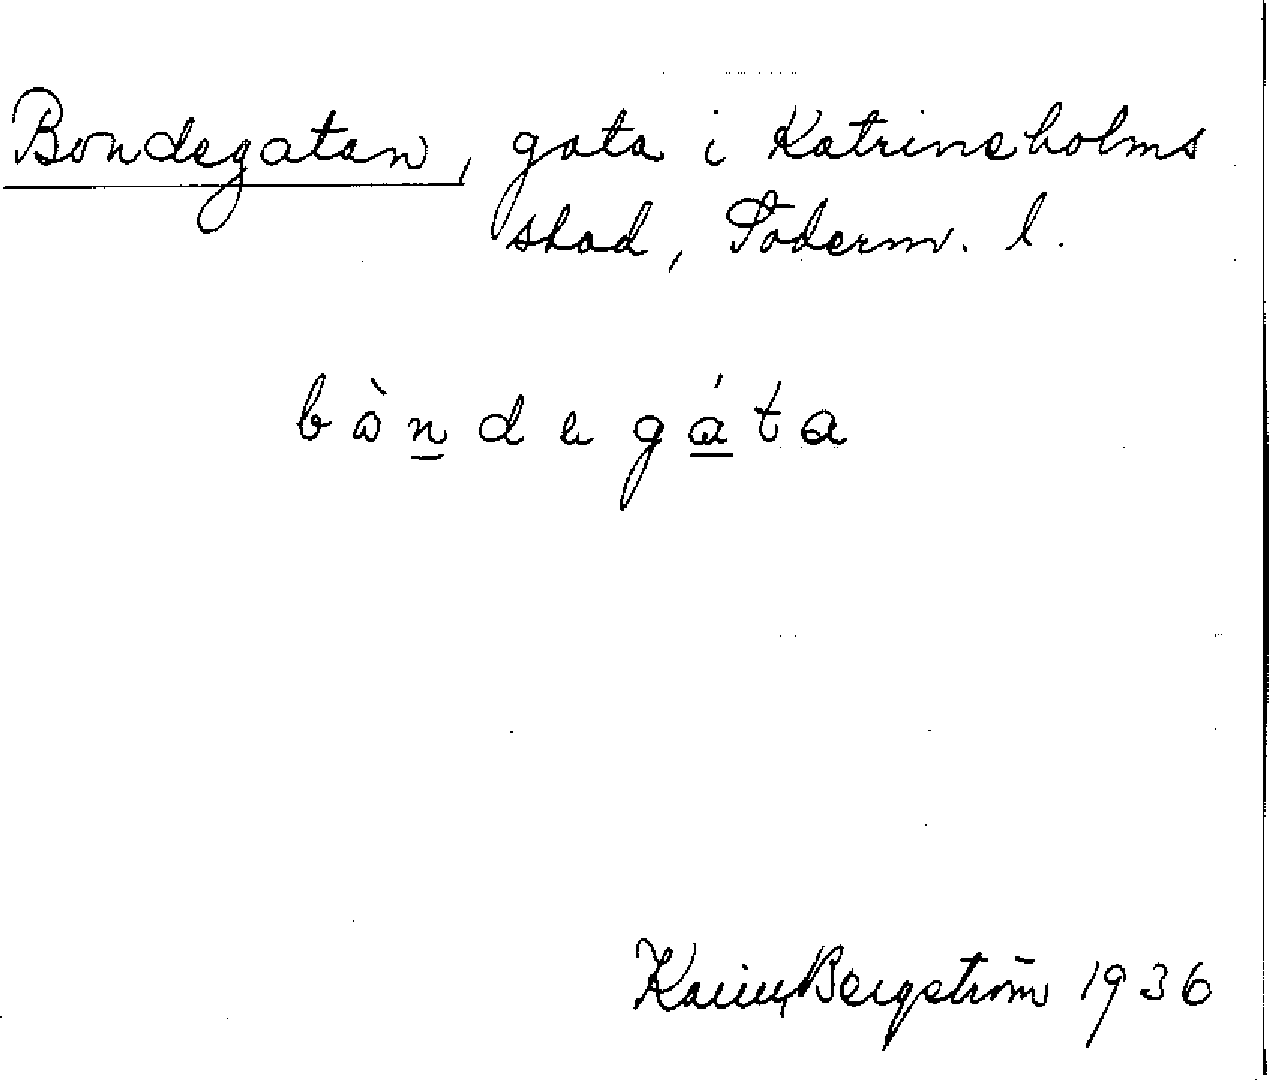 Bondegatan, gata i Katrineholms
stad, Söderm. l.
bòndegáta
Karin Bergström 1936